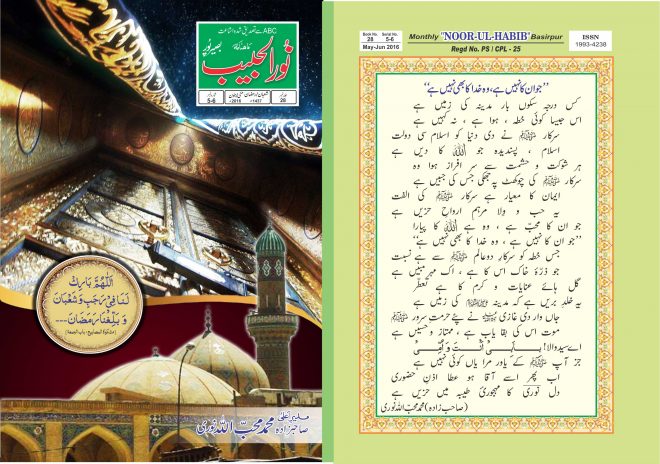 ABC سے تصدیق شدہ اشاعت
ماہنامہ
نور الحبیب
بصیر پور
جلد نمبر
28
شعبان / رمضان
1437ھ
2016ء
شمارہ نمبر
5-6
اَللّٰهُمَّ بَارِكْ
لَنَا فِيْ رَجَبَ وَشَعْبَانَ
وَبَلِّغْنَا رَمَضَانَ ....
صاحبزادہ محمد محب اللہ نوری
Book No. 28
Serial No. 5-6
May-Jun 2016
Monthly "NOOR-UL-HABIB" Basirpur
Regd No. PS / CPL - 25
ISSN
1993-4238
”جو ان کا نہیں ہے، وہ خدا کا بھی نہیں ہے“
کس درجہ سکوں بار مدینہ کی زمیں ہے
اس جیسا کوئی خطہ، ہوا ہے، نہ کہیں ہے
سرکار ﷺ نے دی دنیا کو اسلام سی دولت
اسلام، پسندیدہ جو اللہ کا دیں ہے
ہر شوکت و حشمت سے سر افراز ہوا وہ
سرکار ﷺ کی چوکھٹ پہ جھکی جس کی جبیں ہے
ایمان کا معیار ہے سرکار ﷺ کی الفت
یہ حب و ولا مرہم ارواحِ حزیں ہے
جو ان کا محب ہے، وہ ہے اللہ کا پیارا
”جو ان کا نہیں ہے، وہ خدا کا بھی نہیں ہے“
جس خطہ کو سرکارِ دو عالم ﷺ سے ہے نسبت
جو ذرۂ خاک اس کا ہے، اک مہر مبیں ہے
گل ہائے عنایات و کرم کا ہے تعطر
یہ خلدِ بریں ہے کہ مدینہ ﷺ کی زمیں ہے
جاں وار دی غازی نے پئے حرمتِ سرور ﷺ
موت اس کی بقا یاب ہے، ممتاز و حسیں ہے
اے سیدِ والا! بِأَبِيْ أَنْتَ وَ أُمِّيْ
جز آپ ﷺ کے یاور مرا یاں کوئی نہیں ہے
اب پھر اسے آقا ہو عطا اذنِ حضوری
دل نوری کا مہجوریِ طیبہ میں حزیں ہے
(صاحب زادہ) محمد محب اللہ نوری